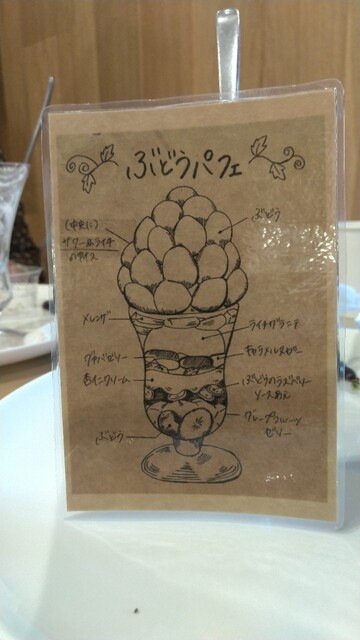 ぶどうパフェ
(中央に)
サワー&ライチ
のアイス
ぶどう
メレンゲ
ライチグラニテ
グァバゼリー
キャラメルヌガー
白ワインクリーム
ぶどうのラズベリー
ソースあえ
ぶどう
グレープフルーツ
ゼリー